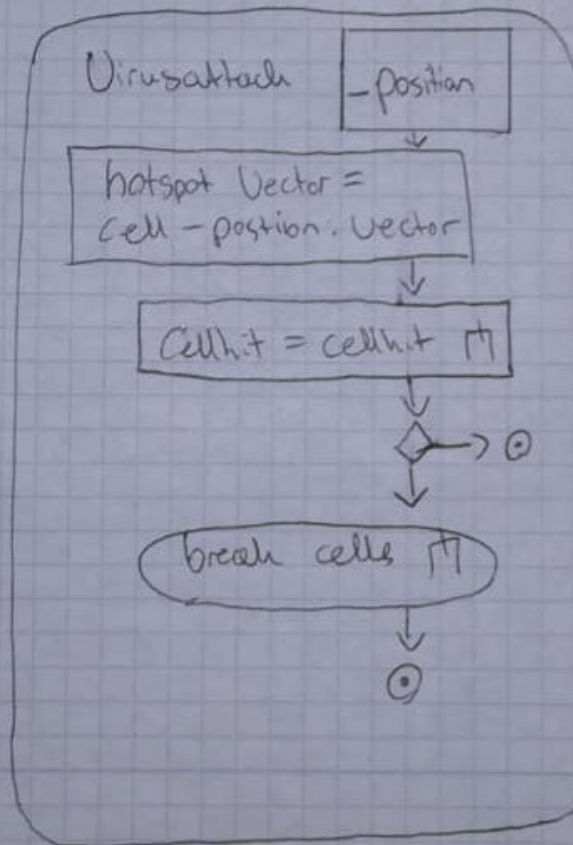 Virusattack
-position
hotspot Vector =
cell - postion. vector
Cellhit = cellhit
break cells